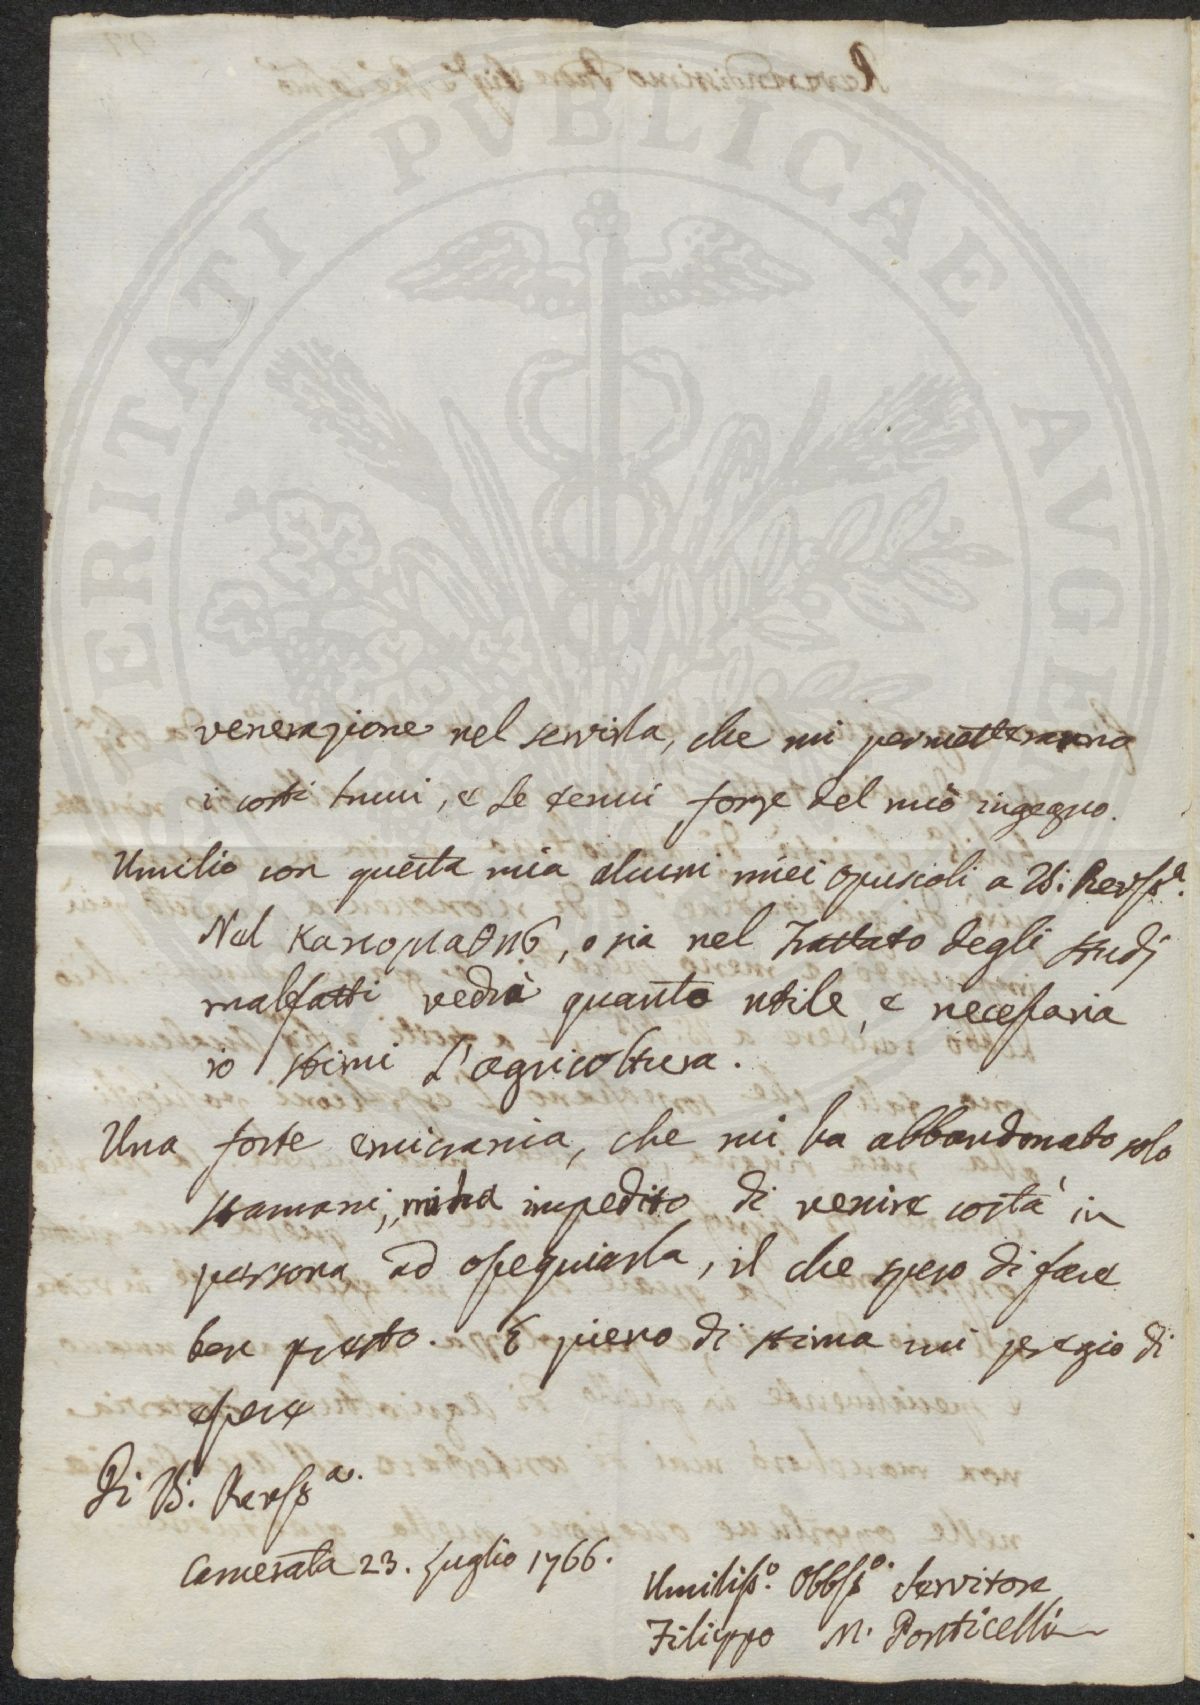 venerazione nel servirla, che mi permetteranno
i corti lumi, e le tenui forze del mio ingegno.
Umilio con questa mia alcuni miei opuscoli a V: Revssa.
Nel κακομαθης, o sia nel Trattato degli studj
malfatti vedrà quanto utile, e necessaria
io stimi l'agricoltura.
Una forte emicrania, che mi ha abbandonato solo
stamani, mi ha impedito di venire costà in
persona ad ossequiarla, il che spero di fare
ben presto. E pieno di stima mi pregio di
essere
Di V: Revssa.
Camerata 23. Luglio 1766.
Umiliss.o Obbssº. Servitore
Filippo M. Ponticelli
VERITATI PUBLICAE AUGE